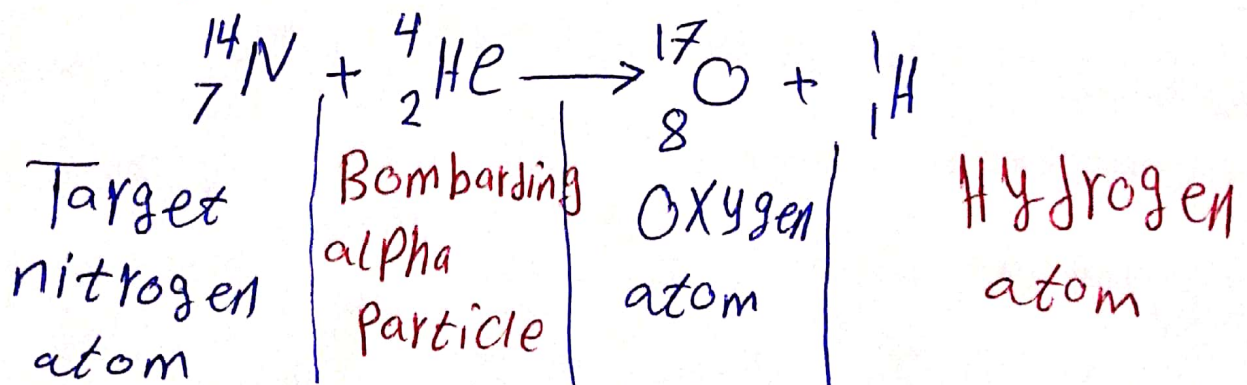 ¹⁴₇N + ⁴₂He → ¹⁷₈O + ¹₁H
Target
nitrogen
atom
Bombarding
alpha
particle
Oxygen
atom
Hydrogen
atom